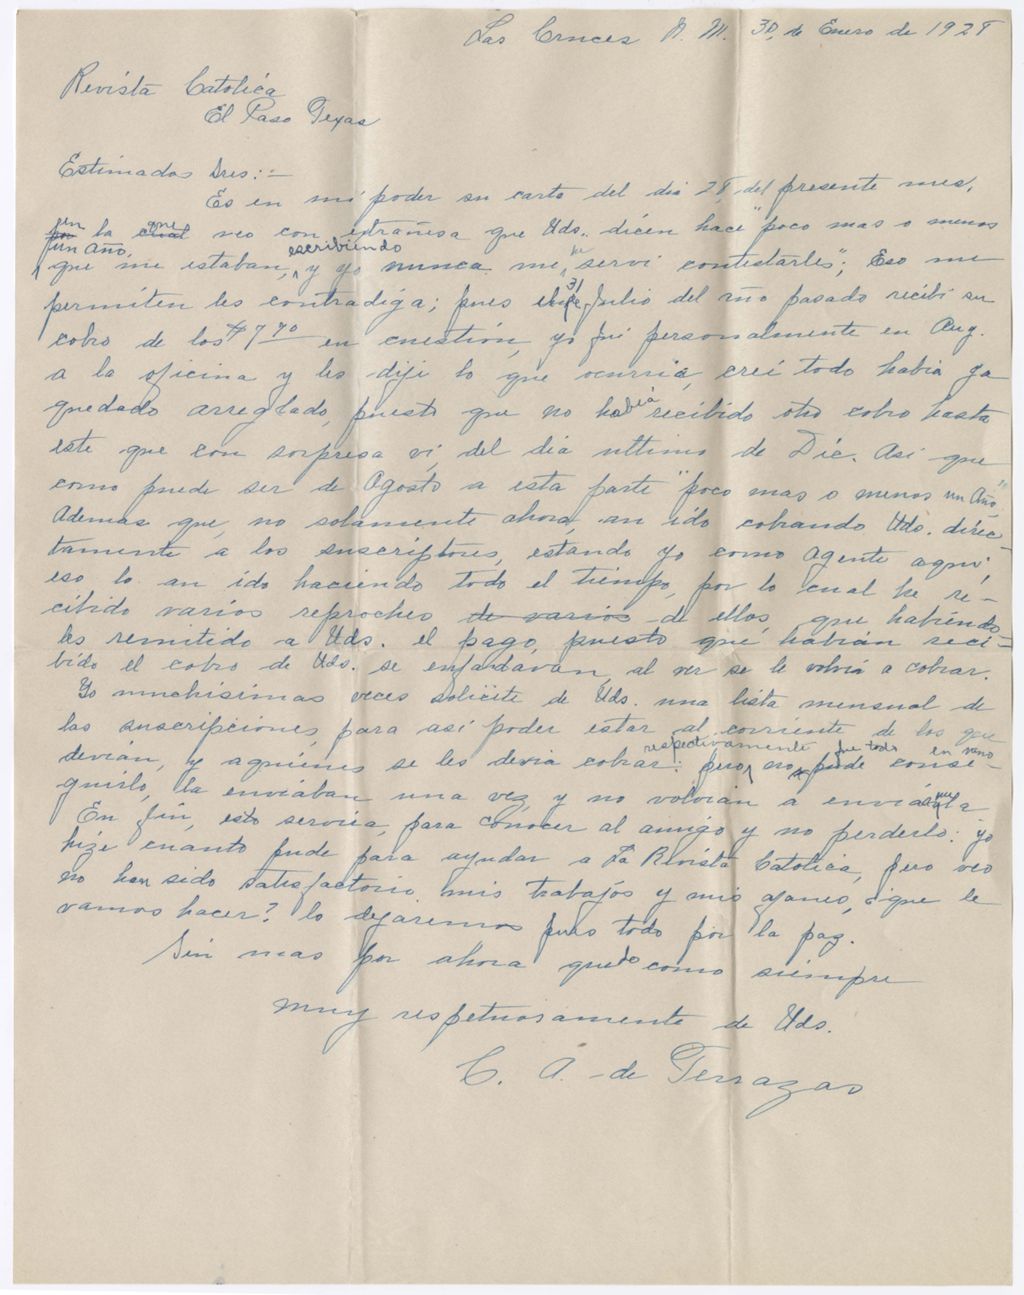 Las Cruces N. M. 30, de Enero de 1928
Revista Catolica
El Paso Texas
Estimados Sres:=
Es en mi poder su carta del dia 28, del presente mes,
en la que veo con extrañesa que Uds. dicen hace "poco mas o menos
un Año, que me estaban escribiendo, y yo nunca me he servi contestarles"; Eso me
permiten les contradiga; pues el 31 de Julio del año pasado recibi su
cobro de los $7 70 en cuestión, yo fui personalmente en Aug.
a la oficina y les dije lo que ocurria, crei todo habia ya
quedado arreglado, puesto que no habia recibido otro cobro hasta
este que con sorpresa vi, del dia ultimo de Dic. Asi que
como puede ser de Agosto a esta parte "poco mas o menos un Año,"
Ademas que, no solamente ahora, an ido cobrando Uds. direc-
tamente a los suscriptores, estando yo como Agente aqui,
eso lo an ido haciendo todo el tiempo, por lo cual he re-
cibido varios reproches de varios de ellos, que habiendo-
les remitido a Uds. el pago, puesto que habian reci-
bido el cobro de Uds. se enfadavan, al ver se le volvia a cobrar.
Yo muchisimas veces solicite de Uds. una lista mensual de
las suscripciones, para asi poder estar al corriente de los que
devian, y aquienes se les devia cobrar respectivamente: pero, fue todo en vano no pude conse-
guirlo, la enviaban una vez, y no volvian a enviarmela
En fin, esto servira, para conocer al amigo y no perderlo: yo
hize cuanto pude para ayudar a La Revista Catolica, pero veo
no han sido satisfactorio mis trabajos y mis afanes, ¿que le
vamos hacer? lo dejaremos pues todo por la paz.
Sin mas por ahora quedo como siempre
muy respetuosamente de Uds.
C. A. de Terrazas